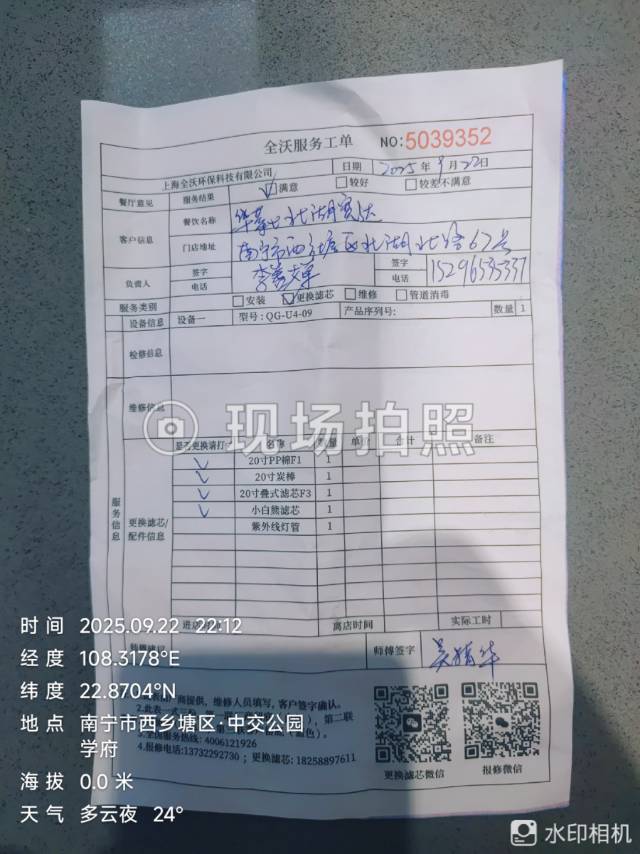 全沃服务工单 NO:5039352
上海全沃环保科技有限公司 日期 2025年9月22日
餐厅意见 服务结果 满意 较好 较差不满意
客户信息 餐饮名称 华莱士北湖宾达
门店地址 南宁市西乡塘区北湖北路67号
负责人 签字 李善卓 签字
电话 电话 15296535337
服务类别 安装 更换滤芯 维修 管道消毒
设备信息 设备一 型号:QG-U4-09 产品序列号: 数量 1
检修信息
维修信息
现场拍照
是否更换请打 名称 数量 单价 合计 备注
服务信息
更换滤芯/配件信息
20寸PP棉F1 1
20寸炭棒 1
20寸叠式滤芯F3 1
小白熊滤芯 1
紫外线灯管 1
进店 离店时间 实际工时
师傅签字
厂商提供,维修人员填写,客户签字确认。
2.此表一式三 第二联
3.全国服务热线:4006121926
4.报修电话:13732292730 ; 更换滤芯:18258897611
更换滤芯微信 报修微信
时间 2025.09.22 22:12
经度 108.3178°E
纬度 22.8704°N
地点 南宁市西乡塘区·中交公园
学府
海拔 0.0 米
天气 多云夜 24°
水印相机